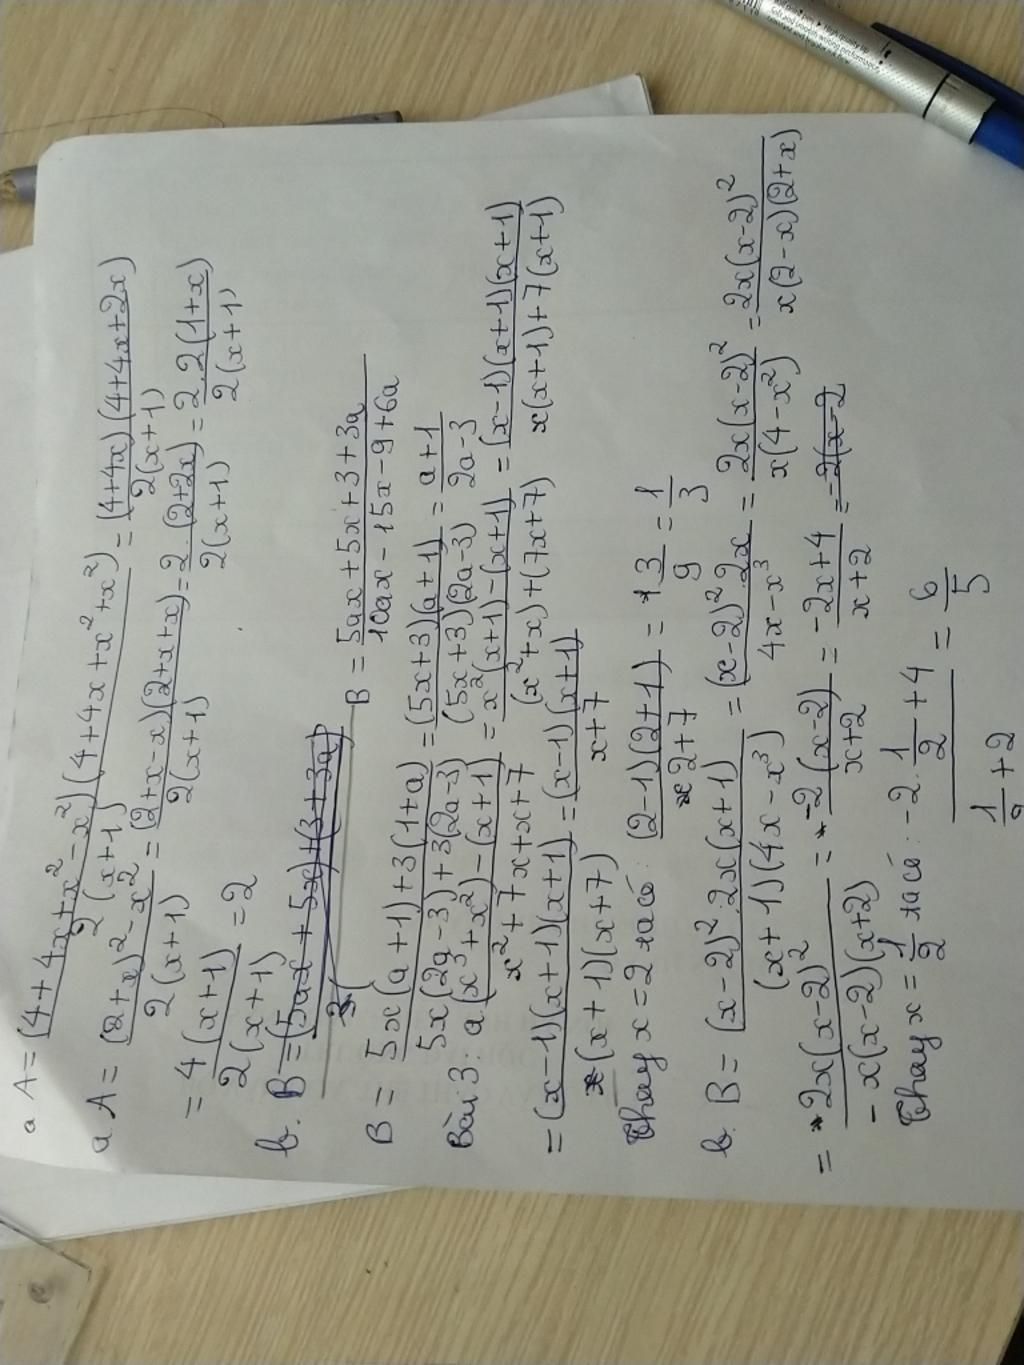 a A = (4+4x+x²-x²)(4+4x+x²+x²) / 2(x+1) = (4+4x)(4+4x+2x) / 2(x+1)
a. A = (2+x)²-x² / 2(x+1) = (2+x-x)(2+x+x) / 2(x+1) = 2.(2+2x) / 2(x+1) = 2.2(1+x) / 2(x+1)
= 4(x+1) / 2(x+1) = 2
b. B = (5ax+5x)+(3+3a) B = 5ax+5x+3+3a / 10ax-15x-9+6a
B = 5x(a+1)+3(1+a) / 5x(2a-3)+3(2a-3) = (5x+3)(a+1) / (5x+3)(2a-3) = a+1 / 2a-3
Bài 3. a. (x³+x²)-(x+1) / x²+7x+x+7 = x²(x+1)-(x+1) / (x²+x)+(7x+7) = (x-1)(x+1)(x+1) / x(x+1)+7(x+1)
= (x-1)(x+1)(x+1) / (x+1)(x+7) = (x-1)(x+1) / x+7
Thay x=2 ta có: (2-1)(2+1) / 2+7 = 3/9 = 1/3
b. B = (x-2)².2x(x+1) / (x+1)(4x-x³) = (x-2)².2x / 4x-x³ = 2x(x-2)² / x(4-x²) = 2x(x-2)² / x(2-x)(2+x)
= 2x(x-2)² / -x(x-2)(x+2) = -2(x-2) / x+2 = -2x+4 / x+2 = -2(x-2
Thay x = 1/2 ta có: -2.1/2+4 / 1/2+2 = 6/5